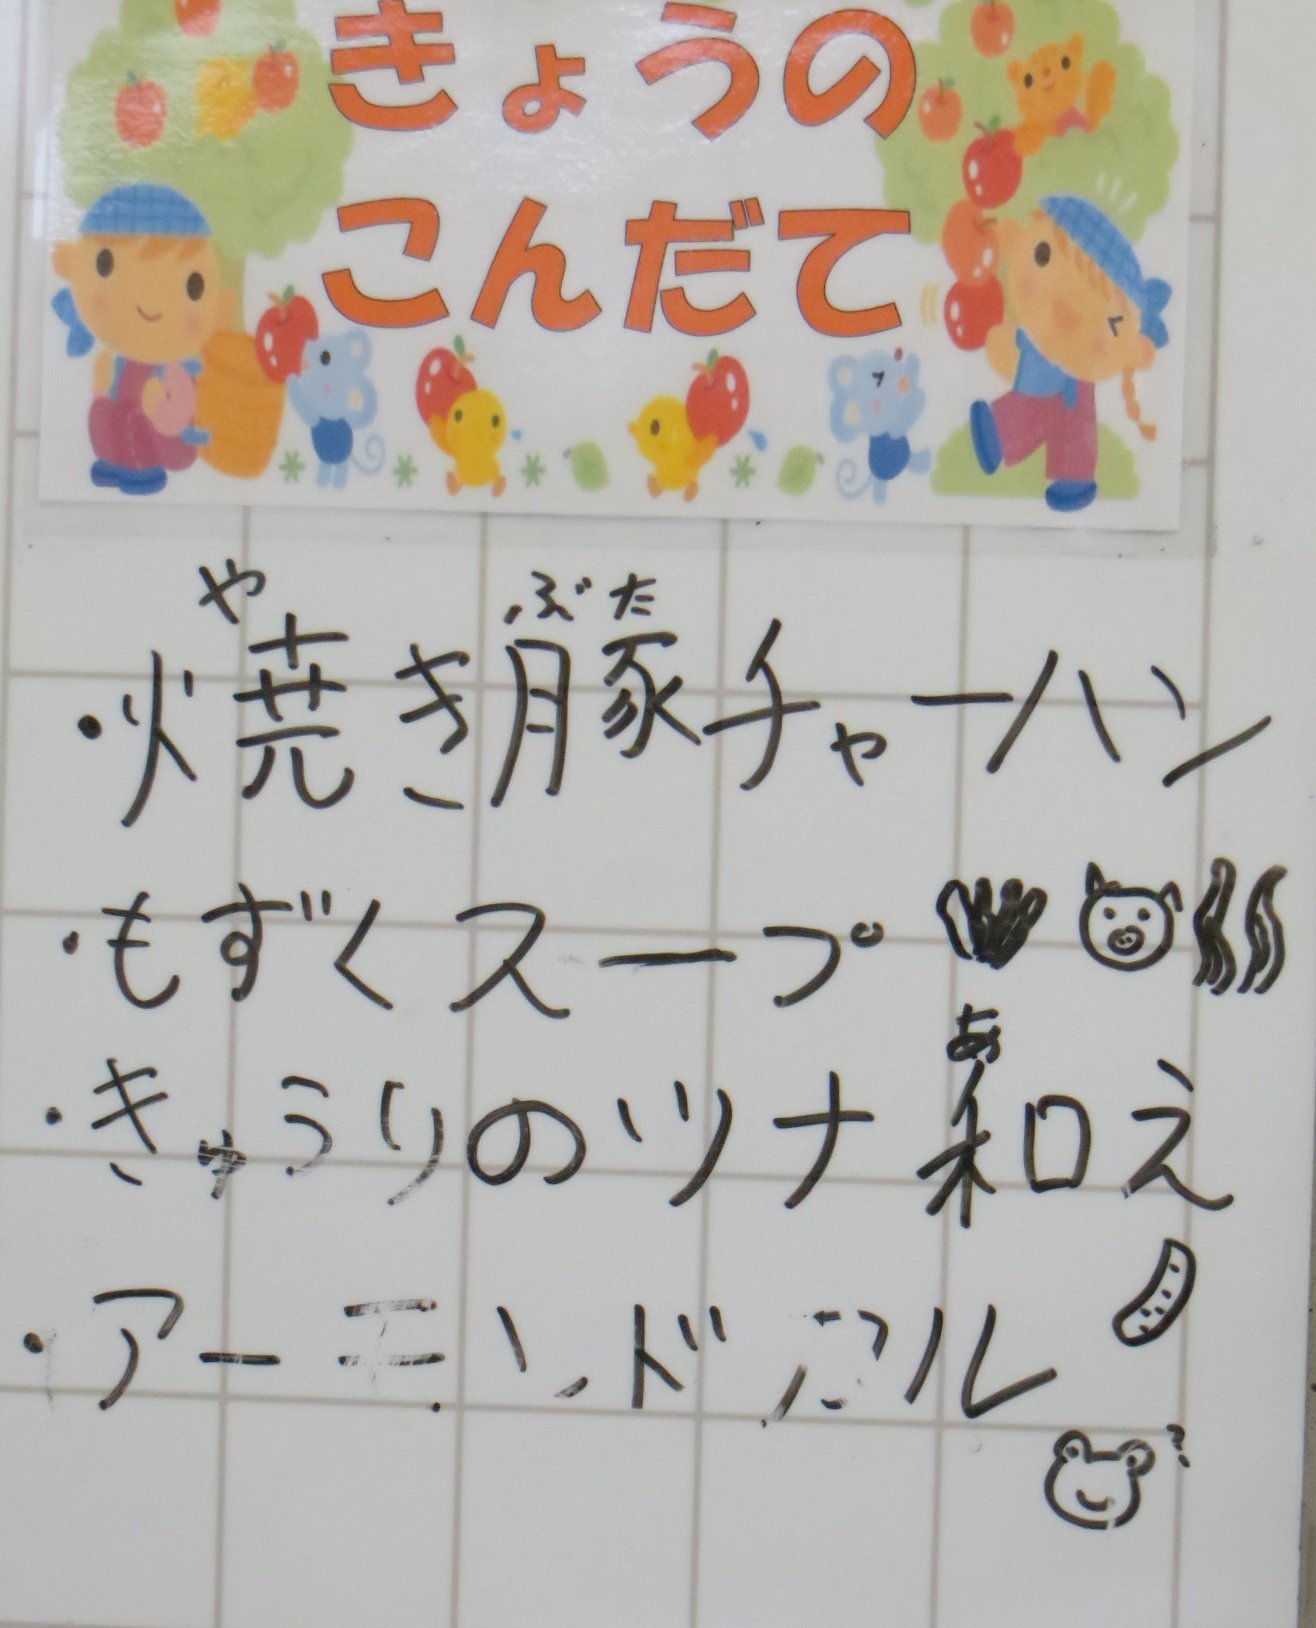 きょうの
こんだて
や ぶた
・焼き豚チャーハン
・もずくスープ
あ
・きゅうりのツナ和え
・アーモンドカル
?